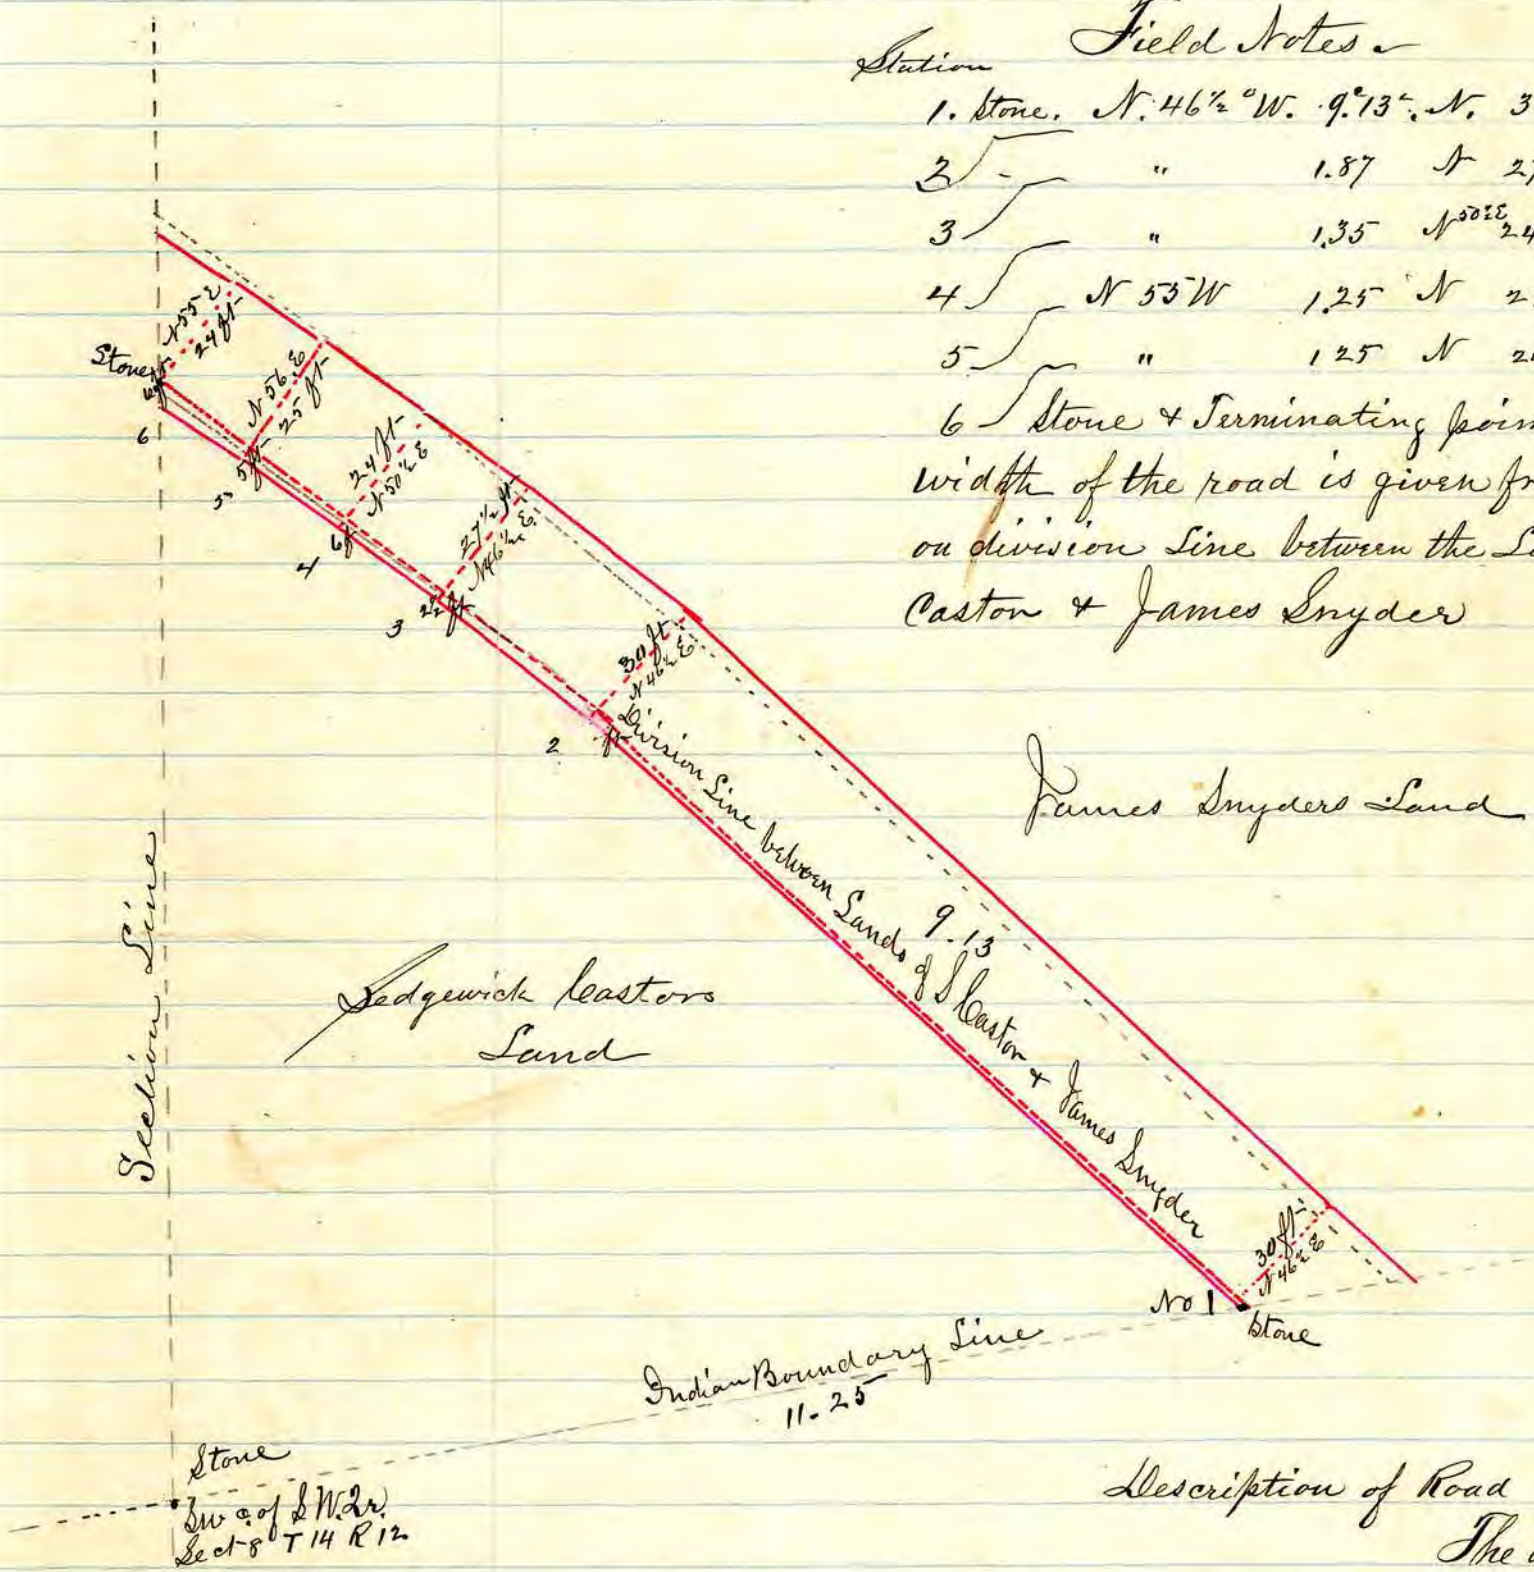 Field Notes
Station
1. Stone. N. 46½° W. 9.13 N. 3
2 " 1.87 N 27
3 " 1.35 N 50½E 24
4 N 55 W 1.25 N 2
5 " 125 N 2
6 Stone & Terminating poin
width of the road is given fr
on division Line between the La
Caston & James Snyder
N 55 E
24 ft
Stone
6 ft
6
N 56 E
25 ft
5 ft
5
24 ft
N 50½ E
6 ft
4
27½ ft
N 46½ E
2½ ft
3
30 ft
N 46½ E
ft
2
Division Line between Lands of S Caston & James Snyder
9.13
James Snyders Land
Section Line
Sedgewick Castons
Land
30 ft
N 46½ E
No 1
Stone
Indian Boundary Line
11.25
Stone
Sw c. of S W. Qr.
Sect 8 T 14 R 12
Description of Road
The